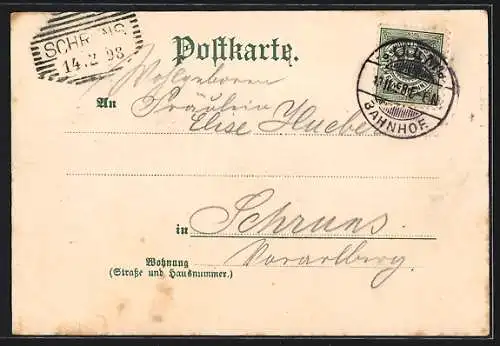 SCHRUNS
14.2.98
Postkarte.
Wohlgeboren
An Fräulein
Elise Hueber
in Schruns
Vorarlberg
Wohnung
(Straße und Hausnummer.)
BAHNHOF.